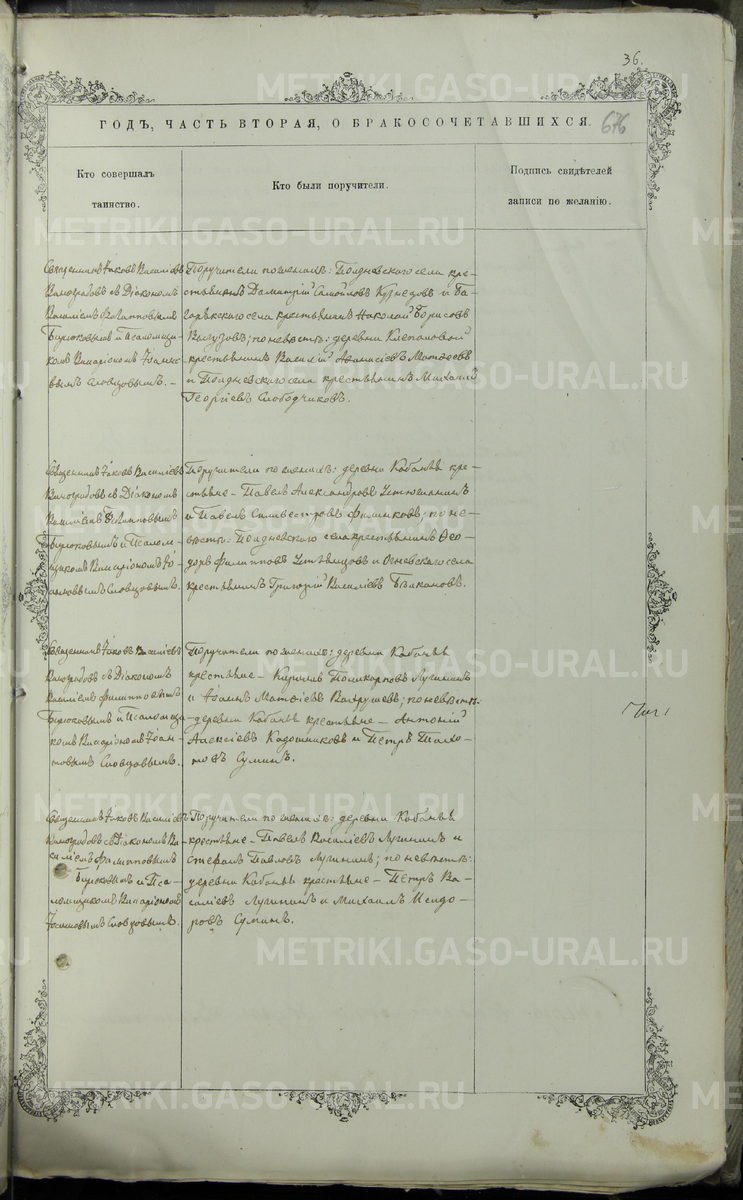 36.
676
ГОДЪ, ЧАСТЬ ВТОРАЯ, О БРАКОСОЧЕТАВШИХСЯ.
Кто совершалъ
таинство.
Кто были поручители.
Подпись свидѣтелей
записи по желанію.
Священникъ Іаковъ Васильевъ
Виноградовъ съ Діакономъ
Василіемъ Филипповымъ
Бирюковымъ и Псаломщи-
комъ Иларіономъ Іоанно-
вымъ Словцовымъ. -
Поручители по женихѣ: Полдневскаго села кре-
стьянинъ Димитрій Самойловъ Кузнецовъ и Ба-
гарякскаго села крестьянинъ Николай Борисовъ
по невѣстѣ: деревни Клепаловой
крестьянинъ Василій Аѳанасіевъ Матѳеевъ
и Полдневскаго села крестьянинъ Михаилъ
Георгіевъ Слободчиковъ.
Священникъ Іаковъ Василіевъ
Виноградовъ съ Діакономъ
Василіемъ Филипповымъ
Бирюковымъ и Псалом-
щикомъ Иларіономъ Іо-
анновымъ Словцовымъ.
Поручители по женихѣ: деревни Кабаньѣ кре-
стьяне - Павелъ Александровъ Устюжанинъ
и Павелъ Сильвестровъ по не-
вѣстѣ: Полдневскаго села крестьянинъ Ѳео-
доръ Филипповъ и Огневскаго села
крестьянинъ Григорій Василіевъ
Священникъ Іаковъ Василіевъ
Виноградовъ съ Діакономъ
Василіемъ Филипповымъ
Бирюковымъ и Псаломщи-
комъ Иларіономъ Іоан-
новымъ Словцовымъ.
Поручители по женихѣ: деревни Кабаньѣ
крестьяне - Кириллъ Поликарповъ Лугининъ
и Іоаннъ Матѳіевъ Вахрушевъ; по невѣстѣ:
деревни Кабаньѣ крестьяне - Антоній
Алексіевъ Кадошниковъ и Петръ
Суминъ.
Священникъ Іаковъ Василіевъ
Виноградовъ съ Діакономъ Ва-
силіемъ Филипповымъ
Бирюковымъ и Пса-
ломщикомъ Иларіономъ
Іоанновымъ Словцовымъ.
Поручители по женихѣ: деревни Кабаньѣ
крестьяне - Павелъ Василіевъ Лугининъ и
Стефанъ Павловъ Лугининъ; по невѣстѣ:
деревни Кабаньѣ крестьяне - Петръ Ва-
силіевъ Лугининъ и Михаилъ Исидо-
ровъ Суминъ.
METRIKI.GASO-URAL.RU